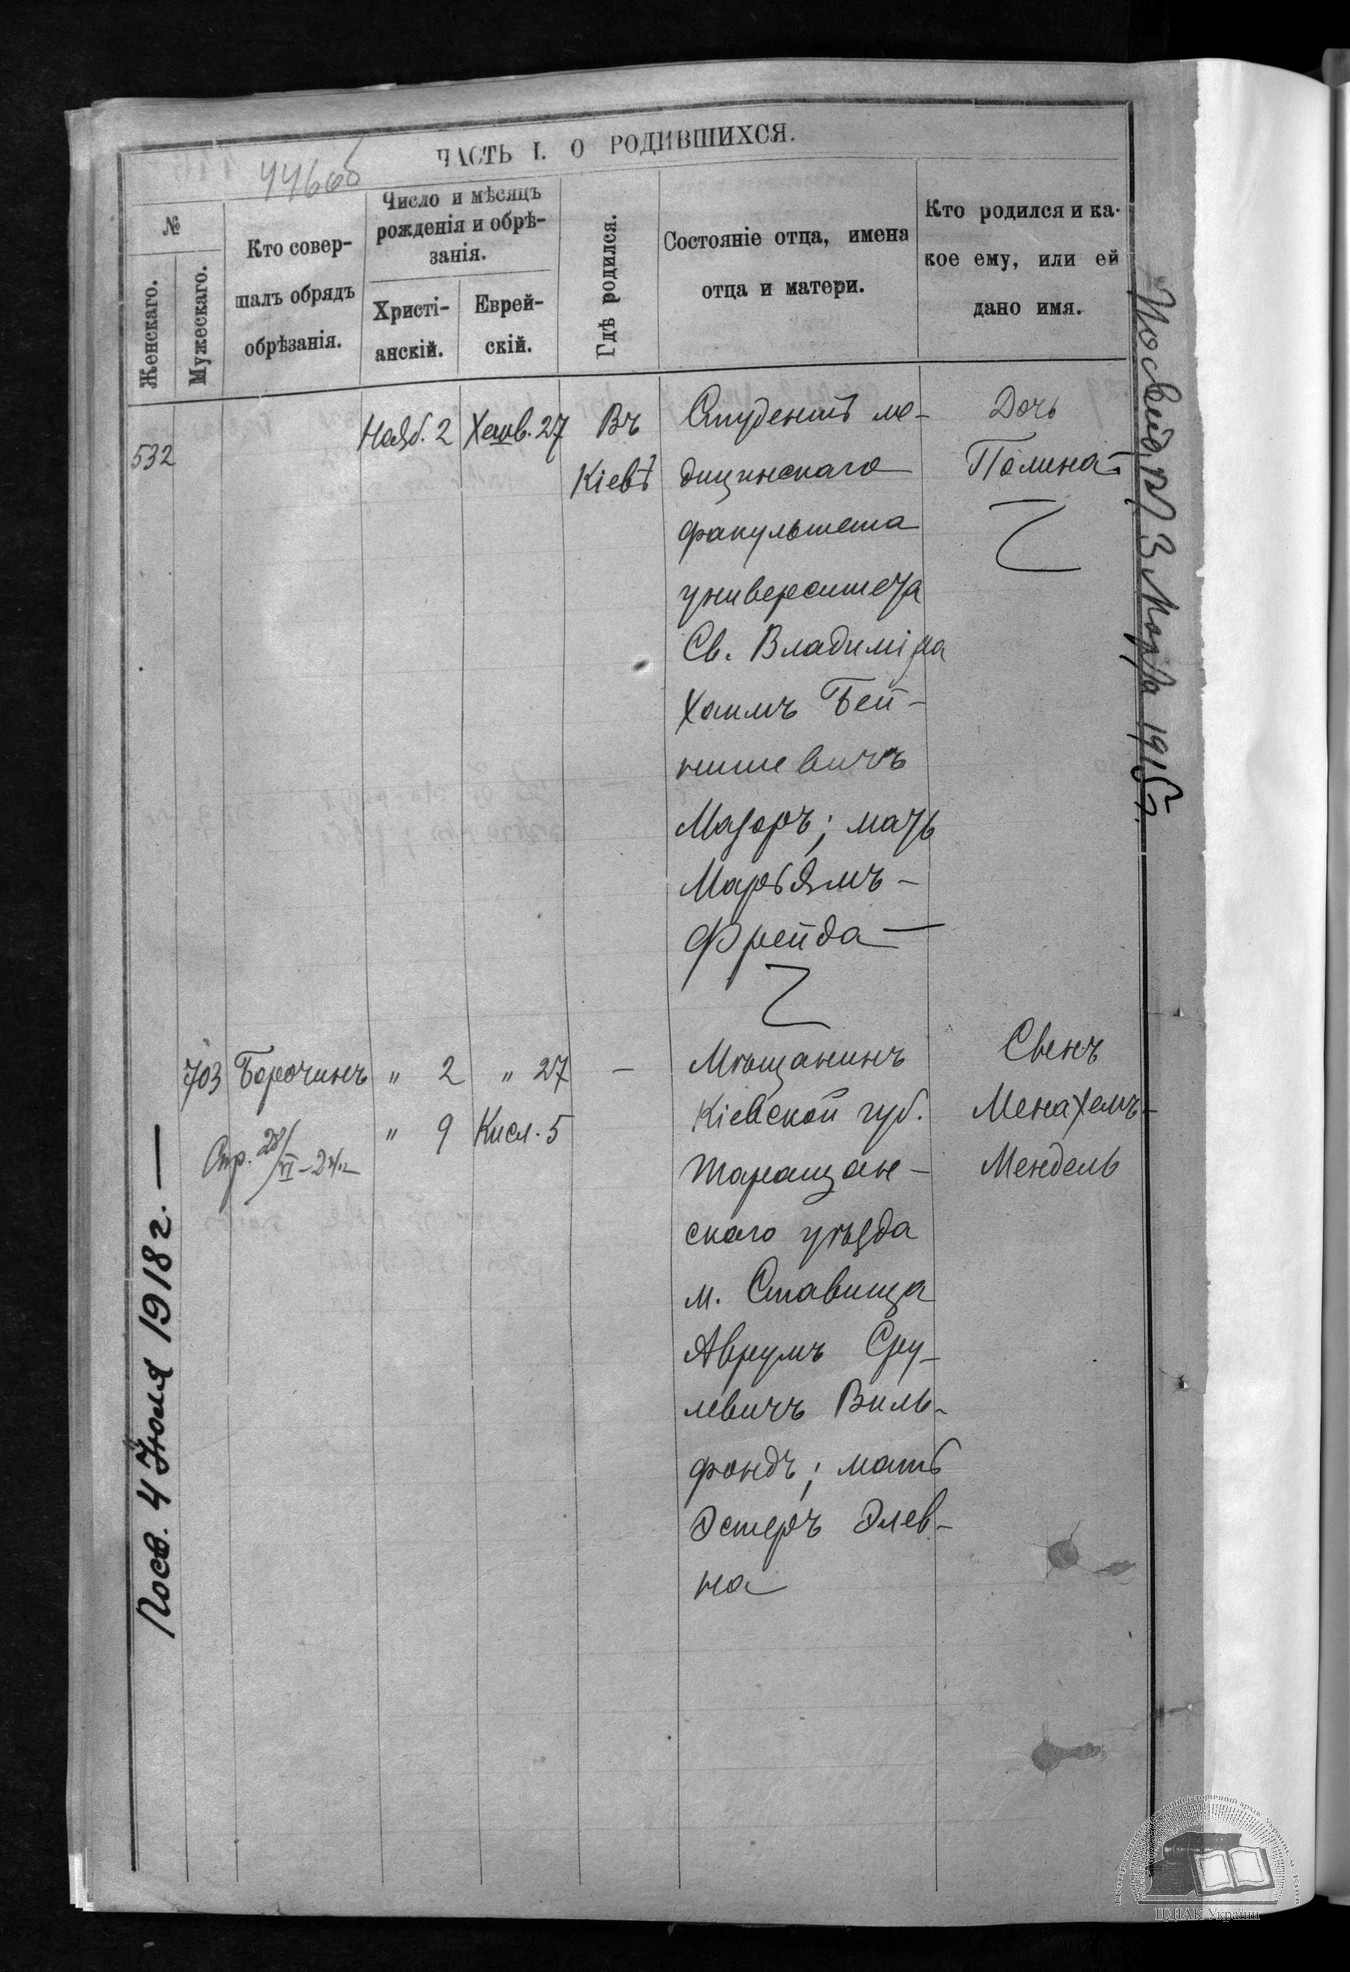 ЧАСТЬ I. О РОДИВШИХСЯ.
№
Женскаго.
Мужескаго.
Кто совер-
шалъ обрядъ
обрѣзанія.
Число и мѣсяцъ
рожденія и обрѣ-
занія.
Христі-
анскій.
Еврей-
скій.
Гдѣ родился.
Состояніе отца, имена
отца и матери.
Кто родился и ка-
кое ему, или ей
дано имя.
532
Нояб. 2
Хешв. 27
Въ
Кіевѣ
Студентъ ме-
дицинскаго
факультета
университета
Св. Владиміра
Хаимъ Бей-
нишевичъ
Мазоръ; мать
Марьямъ-
Фрейда
Дочь
Полина
703
Борочинъ
" 2
" 27
—
" 9
Кисл. 5
Мѣщанинъ
Кіевской губ.
Таращан-
скаго уѣзда
м. Ставища
Аврумъ Сру-
левичъ Виль-
фондъ; мать
Эстеръ Элев-
на
Сынъ
Менахемъ-
Мендель
Посв. 4 Іюля 1918 г.
Марта 1915 г.
ЦДІАК України